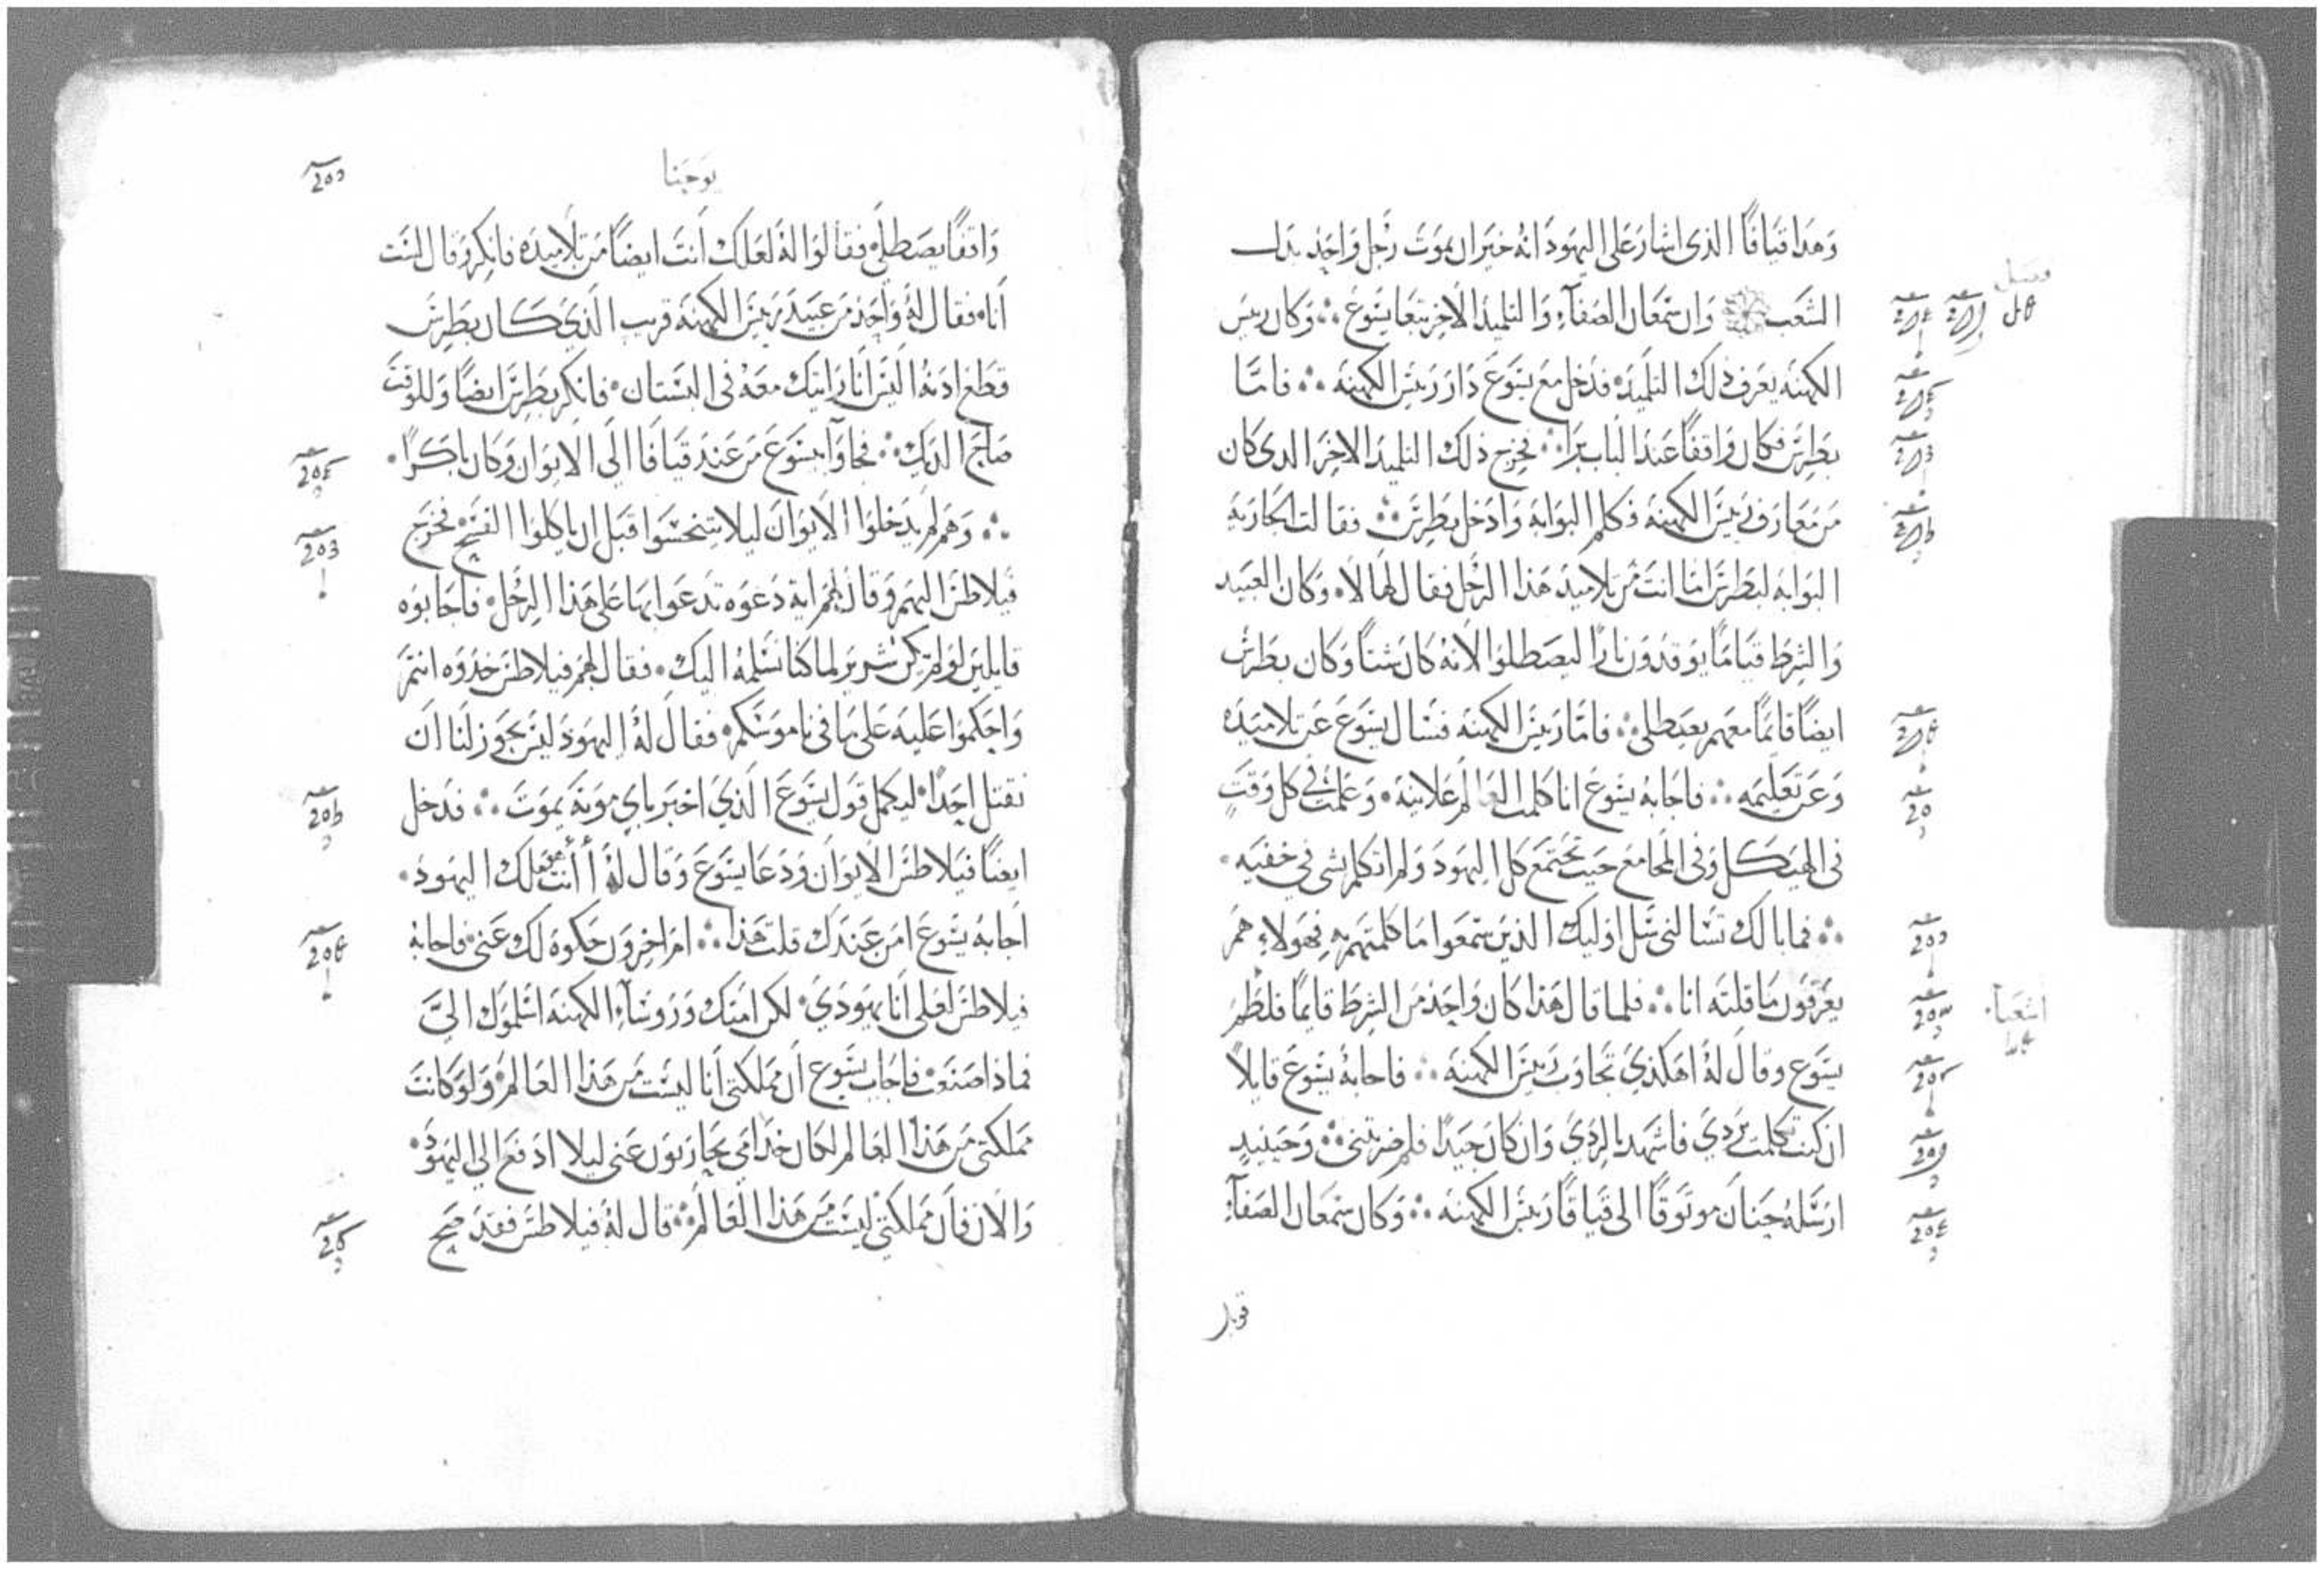 وهذا قيافا الذي اشار على اليهود انه خير ان يموت رجل واحد بدل
فصل
الشعب وان سمعان الصفآء والتلميذ الاخر تبعا يسوع ۞ وكان رييس
الكهنه يعرف ذلك التلميذ فدخل مع يسوع دار رييس الكهنه ۞ فامّا
بطرس فكان واقفًا عند الباب برا ۞ فخرج ذلك التلميذ الاخر الدي كان
من معارف رييس الكهنه فكلم البوابه وادخل بطرس ۞ فقالت الجاريه
البوابه لبطرس اما انت من تلاميد هذا الرجل فقال لها لا وكان العبيد
والشرط قيامًا يوقدون نارًا ليصطلوا لانه كان شتًا وكان بطرس
ايضًا قائمًا معهم يصطلي ۞ فامّا رييس الكهنه فسال يسوع عن تلاميده
وعن تعليمه ۞ فاجابه يسوع انا كلمت العالم علانيه وعلمت في كل وقتٍ
في الهيكل وفي المجامع حيث تجتمع كل اليهود ولم اتكلم بشي في خفيه
۞ فما بالك تسالني سل اوليك الذين سمعوا ما كلمتهم به فهولاء هم
يعرفون ما قلته انا ۞ فلما قال هذا كان واحد من الشرط قايمًا فلطم
اشعيا
يسوع وقال له اهكذي تجاوب رييس الكهنه ۞ فاجابه يسوع قايلًا
ان كنت تكلمت بردي فاشهد بالردي وان كان جيدًا فلم ضربتني ۞ وحينيدٍ
ارسله حنان موثوقًا الى قيافا رييس الكهنه ۞ وكان سمعان الصفآء
يوحنا
واقفًا يصطلي فقالوا له لعلك انت ايضًا من تلاميده فانكر وقال لست
انا فقال له واحد من عبيد رييس الكهنه قريب الذي كان بطرس
قطع ادنه اليس انا رايتك معه في البستان فانكر بطرس ايضًا وللوقت
صاح الديك ۞ فجاوا بيسوع من عند قيافا الى الايوان وكان باكرًا
۞ وهم لم يدخلوا الايوان ليلا يتنجسوا قبل ان ياكلوا الفسح فخرج
فيلاطس اليهم وقال لهم اية دعوه تدعوا بها على هذا الرجل فاجابوه
قايلين لو لم يكن شرير لما كنا نسلمه اليك فقال لهم فيلاطس خدوه انتم
واحكموا عليه على ما في ناموسكم فقال له اليهود ليس يجوز لنا ان
نقتل احدًا ليكمل قول يسوع الذي اخبر باي موته يموت ۞ فدخل
ايضًا فيلاطس الايوان ودعا يسوع وقال له أأنت هو ملك اليهود
اجابه يسوع امن عندك قلت هذا ۞ ام اخرون حكوه لك عني فاجابه
فيلاطس لعلي انا يهودي لكن امتك وروسآء الكهنه اسلموك اليّ
فماذا صنعت فاجاب يسوع ان مملكتي انا ليست من هذا العالم ولو كانت
مملكتي من هذا العالم لكان خدامي يحاربون عني ليلا ادفع الى اليهود
والان فان مملكتي ليست من هذا العالم ۞ قال له فيلاطس فقد صح